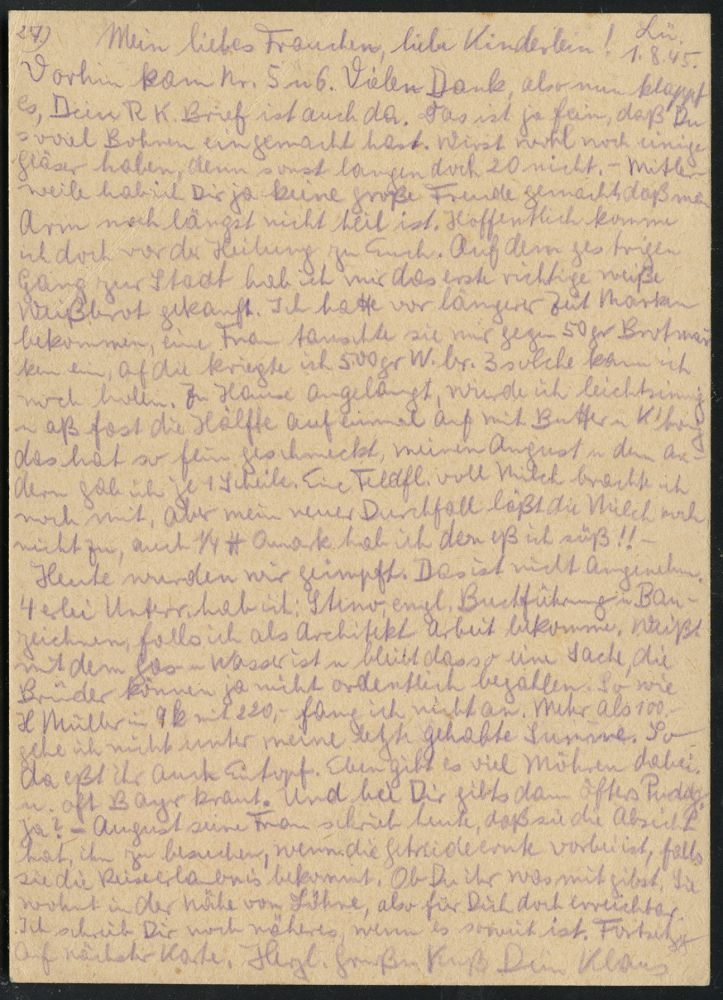 27)
Lü.
1.8.45.
Mein liebes Frauchen, liebe Kinderlein!
Vorhin kam Nr. 5 u 6. Vielen Dank, also nun klappt
es, Dein R K. Brief ist auch da. Das ist ja fein, daß Du
soviel Bohnen eingemacht hast. Wirst wohl noch einige
Gläser haben, denn sonst langen doch 20 nicht. – Mittler-
weile hab ich Dir ja keine große Freude gemacht, daß mein
Arm noch längst nicht heil ist. Hoffentlich komme
ich doch vor der Heilung zu Euch. Auf dem gestrigen
Gang zur Stadt hab ich mir das erste richtige weiße
Weißbrot gekauft. Ich hatte vor längerer Zeit Marken
bekommen, eine Frau tauschte sie mir gegen 50 gr Brotmar
ken ein, auf die kriegte ich 500 gr W.br. 3 solche kann ich
noch holen. Zu Hause angelangt, wurde ich leichtsinnig
u aß fast die Hälfte auf einmal auf mit Butter u K'honig
das hat so fein geschmeckt, meinen August u dem an-
dern gab ich je 1 Scheibe. Eine Feldfl. voll Milch brachte ich
noch mit, aber mein neuer Durchfall läßt die Milch noch
nicht zu, auch 1/4 Quark hab ich den eß ich süß!! –
Heute wurden wir geimpft. Das ist nicht angenehm.
4 erlei Unterr. hab ich: Steno, engl, Buchführung u Bau-
zeichnen, falls ich als Architekt Arbeit bekomme. Weißt
mit dem Gas u Wasser ist u bleibt das so eine Sache, die
Brüder können ja nicht ordentlich bezahlen. So wie
H Müller in 9k mit 220,- fang ich nicht an. Mehr als 100.-
gehe ich nicht unter meine letzte gehabte Summe. So
da eßt ihr auch Eintopf. Eben gibt es viel Möhren dabei.
u. oft Bayr kraut. Und bei Dir gibts dann öfters Puddg.
ja? – August seine Frau schrieb heute, daß sie die Absicht
hat, ihn zu besuchen, wenn die Getreideernte vorbei ist, falls
sie die Reiseerlaubnis bekommt. Ob Du ihr was mit gibst, Sie
wohnt in der Nähe von Löhne, also für Dich doch erreichbar.
Ich schreib Dir noch näheres, wenn es soweit ist. Fortsetz
auf nächster Karte. Herzl. Gruß u Kuß Dein Klaus